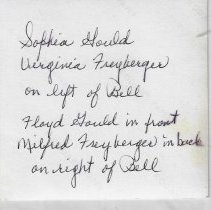 Sophia Gould
Virginia Freyberger
on left of Bell
Floyd Gould in front
Milfred Freyberger in back
on right of Bell